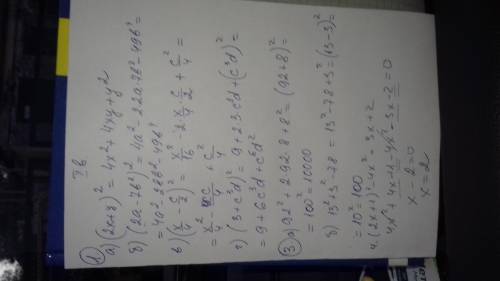 I в
① а) (2x+y)² = 4x² + 4xy + y²
б) (2a-7b²)² = 4a² - 2·2a·7b² - 49b⁴
= 4a² - 28b² - 49b⁴
в) (x/4 - c/2)² = x²/16 - 2 x/4 · c/2 + c²/4 =
г) (3+c³d)² = 9 + 2·3·c³d + (c³d)²
= 9 + 6c³d + c⁶d²
③ а) 92² + 2·92·8 + 8² = (92+8)² =
= 100² = 10000
б) 13² + 3² - 78 = 13² - 78 + 3² = (13-3)² =
= 10² = 100
4. (2x+1)² - 4x² = 3x + 2
x - 2 = 0
x = 2